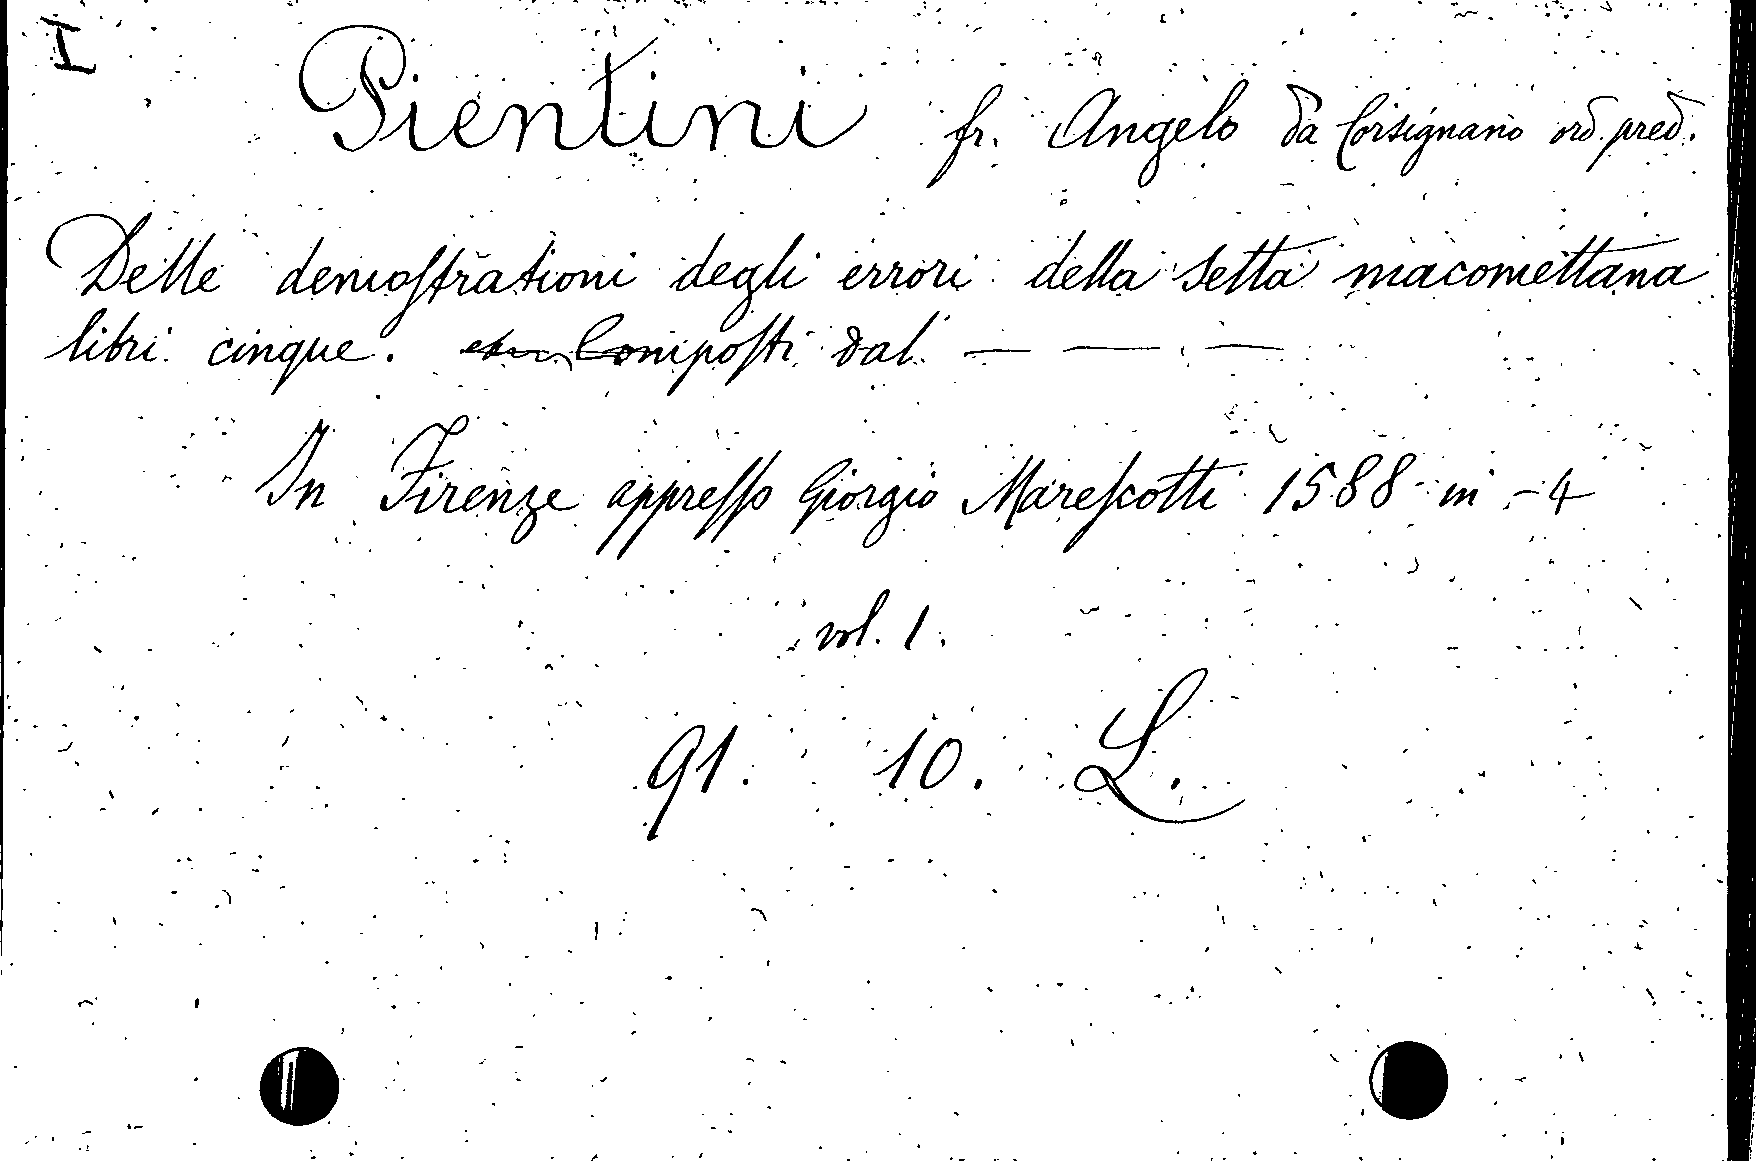 I
Pientini fr. Angelo da Corsignano ord. pred.
Delle demoſtrationi degli errori della setta macomettana
libri cinque. Compoſti dal — — —
In Firenze appreſſo Giorgio Mareſcotti 1588 in -4
vol. 1.
91. 10. L.